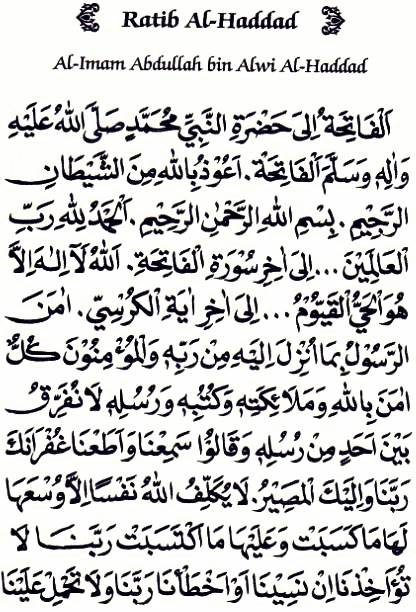 Ratib Al-Haddad
Al-Imam Abdullah bin Alwi Al-Haddad
اَلْفَاتِحَةُ اِلَى حَضْرَةِ النَّبِيِّ مُحَمَّدٍ صَلَّى اللهُ عَلَيْهِ
وَاٰلِهِ وَسَلَّمَ اَلْفَاتِحَةْ . اَعُوْذُ بِاللهِ مِنَ الشَّيْطَانِ
الرَّجِيْمِ . بِسْمِ اللهِ الرَّحْمٰنِ الرَّحِيْمِ . اَلْحَمْدُ لِلّٰهِ رَبِّ
الْعَالَمِيْنَ ... اِلَى اٰخِرِ سُوْرَةِ الْفَاتِحَةِ . اَللهُ لَآ اِلٰهَ اِلَّا
هُوَ الْحَيُّ الْقَيُّوْمُ ... اِلَى اٰخِرِ اٰيَةِ الْكُرْسِيِّ . اٰمَنَ
الرَّسُوْلُ بِمَا اُنْزِلَ اِلَيْهِ مِنْ رَبِّهِ وَالْمُؤْمِنُوْنَ كُلٌّ
اٰمَنَ بِاللهِ وَمَلَائِكَتِهِ وَكُتُبِهِ وَرُسُلِهِ لَا نُفَرِّقُ
بَيْنَ اَحَدٍ مِنْ رُسُلِهِ وَقَالُوْا سَمِعْنَا وَاَطَعْنَا غُفْرَانَكَ
رَبَّنَا وَاِلَيْكَ الْمَصِيْرُ . لَا يُكَلِّفُ اللهُ نَفْسًا اِلَّا وُسْعَهَا
لَهَا مَا كَسَبَتْ وَعَلَيْهَا مَا اكْتَسَبَتْ رَبَّنَا لَا
تُؤَاخِذْنَا اِنْ نَسِيْنَا اَوْ اَخْطَأْنَا رَبَّنَا وَلَا تَحْمِلْ عَلَيْنَا